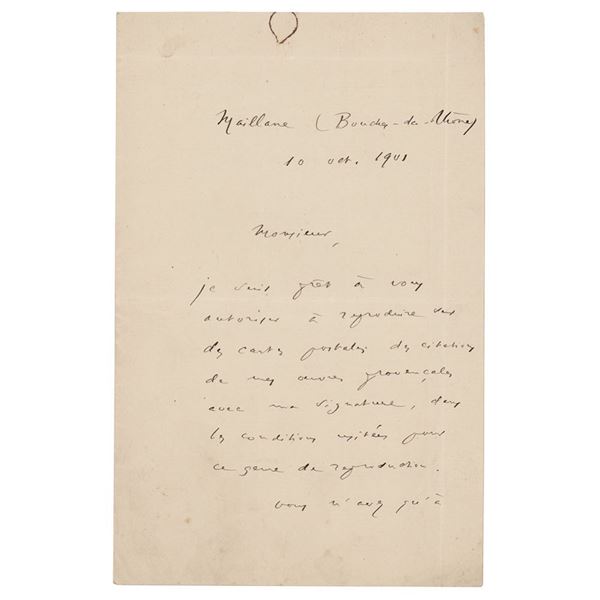 Maillane (Bouches-du-Rhône)
10 oct. 1901
Monsieur,
je suis prêt à vous
autoriser à reproduire sur
des cartes postales des citations
de mes œuvres provençales
avec ma signature, dans
les conditions usitées pour
ce genre de reproduction.
vous n'avez qu'à